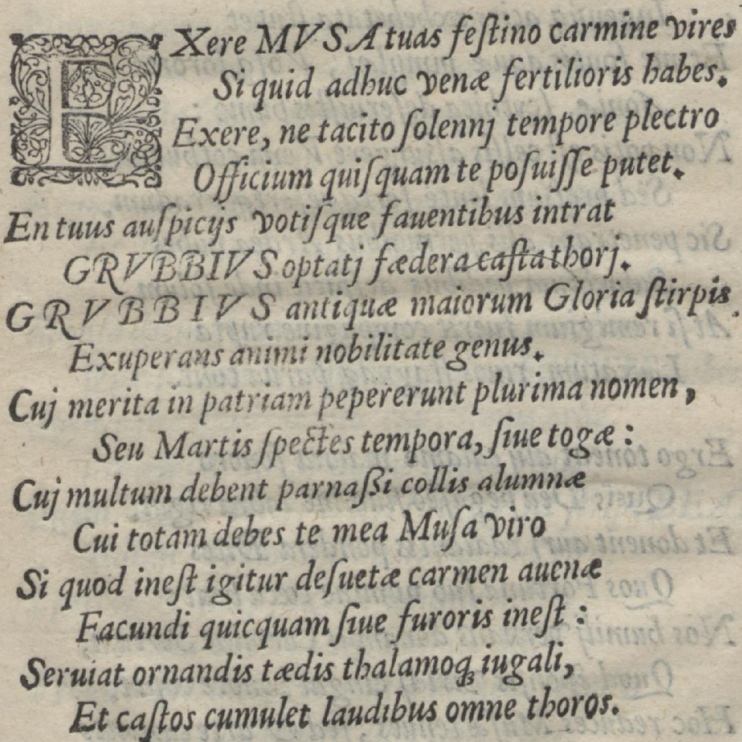 EXere MVSA tuas feſtino carmine vires
Si quid adhuc venæ fertilioris habes.
Exere, ne tacito ſolennj tempore plectro
Officium quiſquam te poſuiſſe putet.
En tuus auſpicijs votiſque fauentibus intrat
GRVBBIVS optatj fædera caſta thorj.
GRVBBIVS antiquæ maiorum Gloria ſtirpis,
Exuperans animi nobilitate genus.
Cuj merita in patriam pepererunt plurima nomen,
Seu Martis ſpectes tempora, ſiue togæ:
Cuj multum debent parnaßi collis alumnæ
Cui totam debes te mea Muſa viro
Si quod ineſt igitur deſuetæ carmen auenæ
Facundi quicquam ſiue furoris ineſt:
Seruiat ornandis tædis thalamoqꝫ iugali,
Et caſtos cumulet laudibus omne thoros.